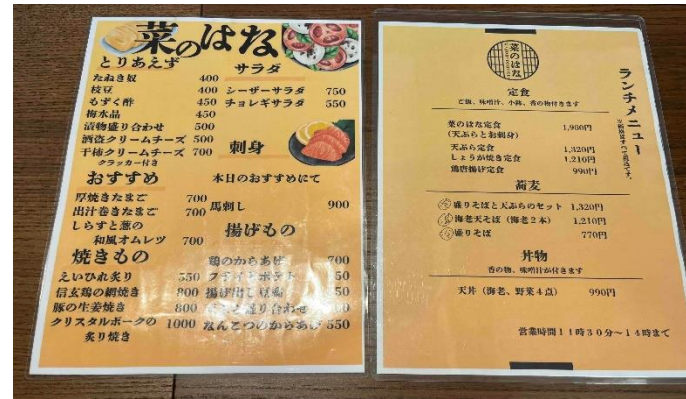 菜のはな
とりあえず
たぬき奴 400
枝豆 400
もずく酢 450
梅水晶 450
漬物盛り合わせ 500
酒盗クリームチーズ 500
干柿クリームチーズ 700
クラッカー付き
おすすめ
厚焼きたまご 700
出汁巻きたまご 700
しらすと葱の
和風オムレツ 700
焼きもの
えいひれ炙り 550
信玄鶏の網焼き 800
豚の生姜焼き 800
クリスタルポークの 1000
炙り焼き
サラダ
シーザーサラダ 750
チョレギサラダ 550
刺身
本日のおすすめにて
馬刺し 900
揚げもの
鶏のからあげ 700
フライドポテト
揚げ出し豆腐
盛り合わせ
なんこつのからあげ 550
菜のはな
ランチメニュー
※価格はすべて税込です。
定食
ご飯、味噌汁、小鉢、香の物付きます
菜のはな定食 1,980円
(天ぷらとお刺身)
天ぷら定食 1,320円
しょうが焼き定食 1,210円
鶏唐揚げ定食 990円
蕎麦
盛りそばと天ぷらのセット 1,320円
海老天そば(海老2本) 1,210円
盛りそば 770円
丼物
香の物、味噌汁が付きます
天丼(海老、野菜4点) 990円
営業時間11時30分〜14時まで